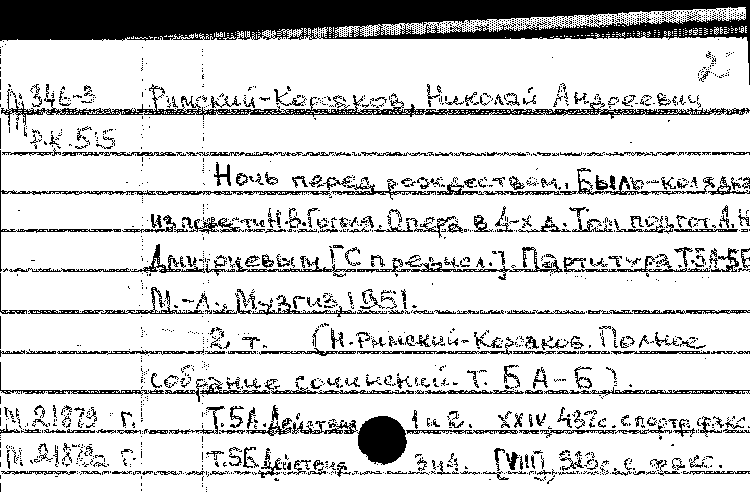 2
М 346-3 Римский-Корсаков, Николай Андреевич
Р.К 515
Ночь перед рождеством. Быль-колядка
из повести Н.В.Гоголя. Опера в 4-х д. Том подгот. А.Н
Дмитриевым. [С предисл.]. Партитура. Т.5А-5Б
М.-Л., Музгиз, 1951.
2 т. (Н. Римский-Корсаков. Полное
собрание сочинений. Т. 5 А-Б).
М.21879 г. Т.5А. Действия 1 и 2. XXIV, 437с. с портр, факс.
М.21879а г. Т.5Б Действия 3 и 4. [VIII], 323с. с факс.